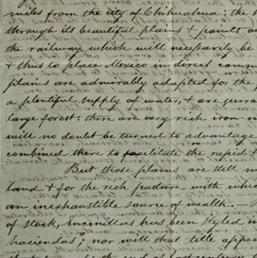 miles from the city of Chihuahua: the
through its beautiful plains & points
the railway which will necessarily be
& thus to place Mexico in direct
plains are admirably adapted for the
a plentiful supply of water, & are
large forest: there are very rich iron
will no doubt be turned to advantage
combined there to facilitate the rapid &
But those plains are still
land & for the rich pasture with which
an inexhaustible source of wealth.
of stock, Mexico had been styled
haciendas; nor will that title